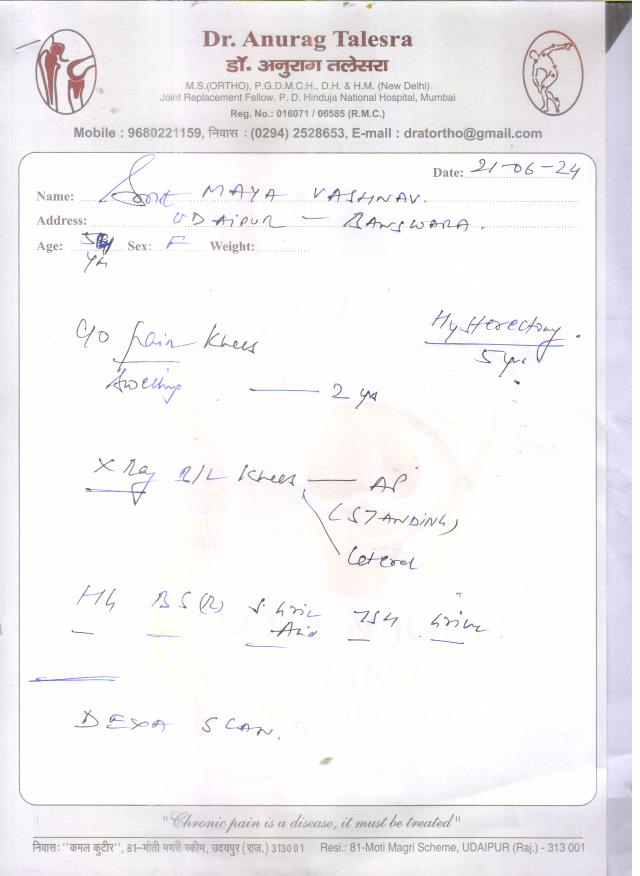 Dr. Anurag Talesra
डॉ. अनुराग तलेसरा
M.S.(ORTHO), P.G.D.M.C.H., D.H. & H.M. (New Delhi)
Joint Replacement Fellow, P. D. Hinduja National Hospital, Mumbai
Reg. No.: 016071 / 06585 (R.M.C.)
Mobile : 9680221159, निवास : (0294) 2528653, E-mail : dratortho@gmail.com
Date: 21-06-24
Name: Smt MAYA VASHNAV.
Address: UDAIPUR - BANSWARA.
Age: yr Sex: F Weight:
C/o pain Knees
Swelling — 2 yrs
Hysterectomy.
5 yr.
X Ray R/L Knees — AP
(STANDING)
Lateral
Hb BS(R) S. Uric Acid TSH Urine
DEXA SCAN.
"Chronic pain is a disease, it must be treated"
निवासः "कमल कुटीर", 81-मोती मगरी स्कीम, उदयपुर (राज.) 313001 Resi.: 81-Moti Magri Scheme, UDAIPUR (Raj.) - 313 001